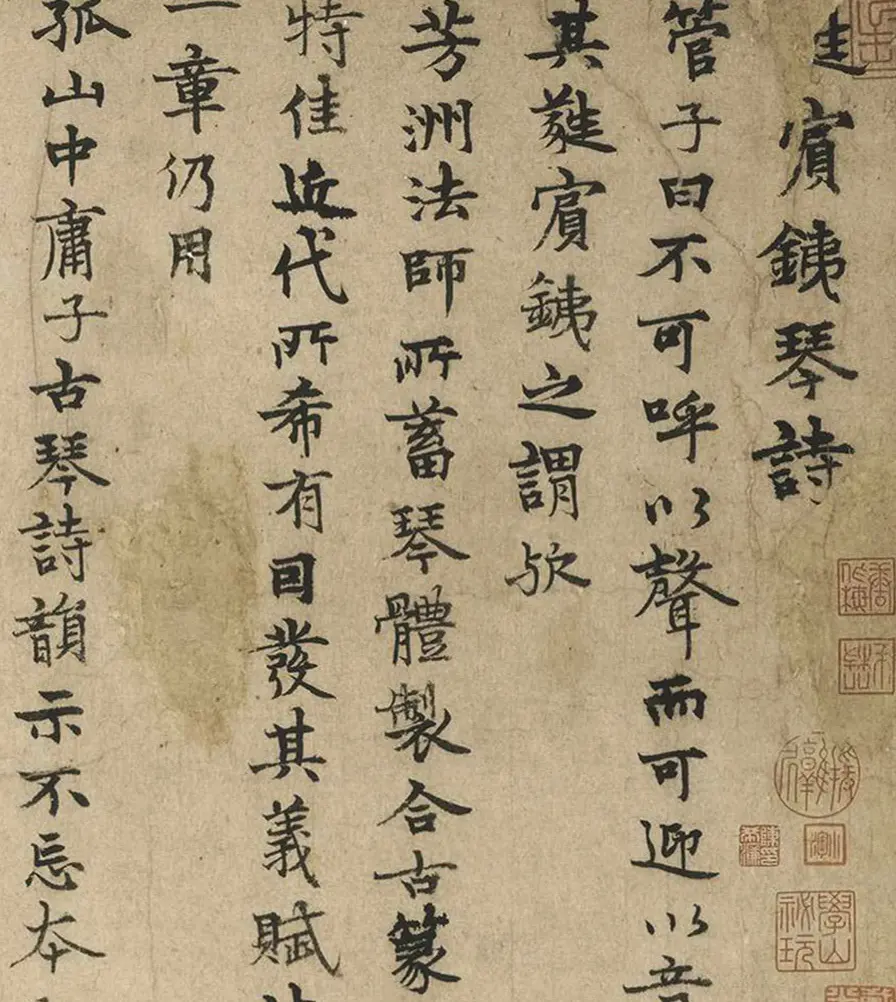 賓鐵琴詩
管子曰不可呼以聲而可迎以音
其蕤賓鐵之謂歟
芳洲法師所蓄琴體製合古篆
特佳近代所希有因發其義賦
一章仍用
孤山中庸子古琴詩韻示不忘本